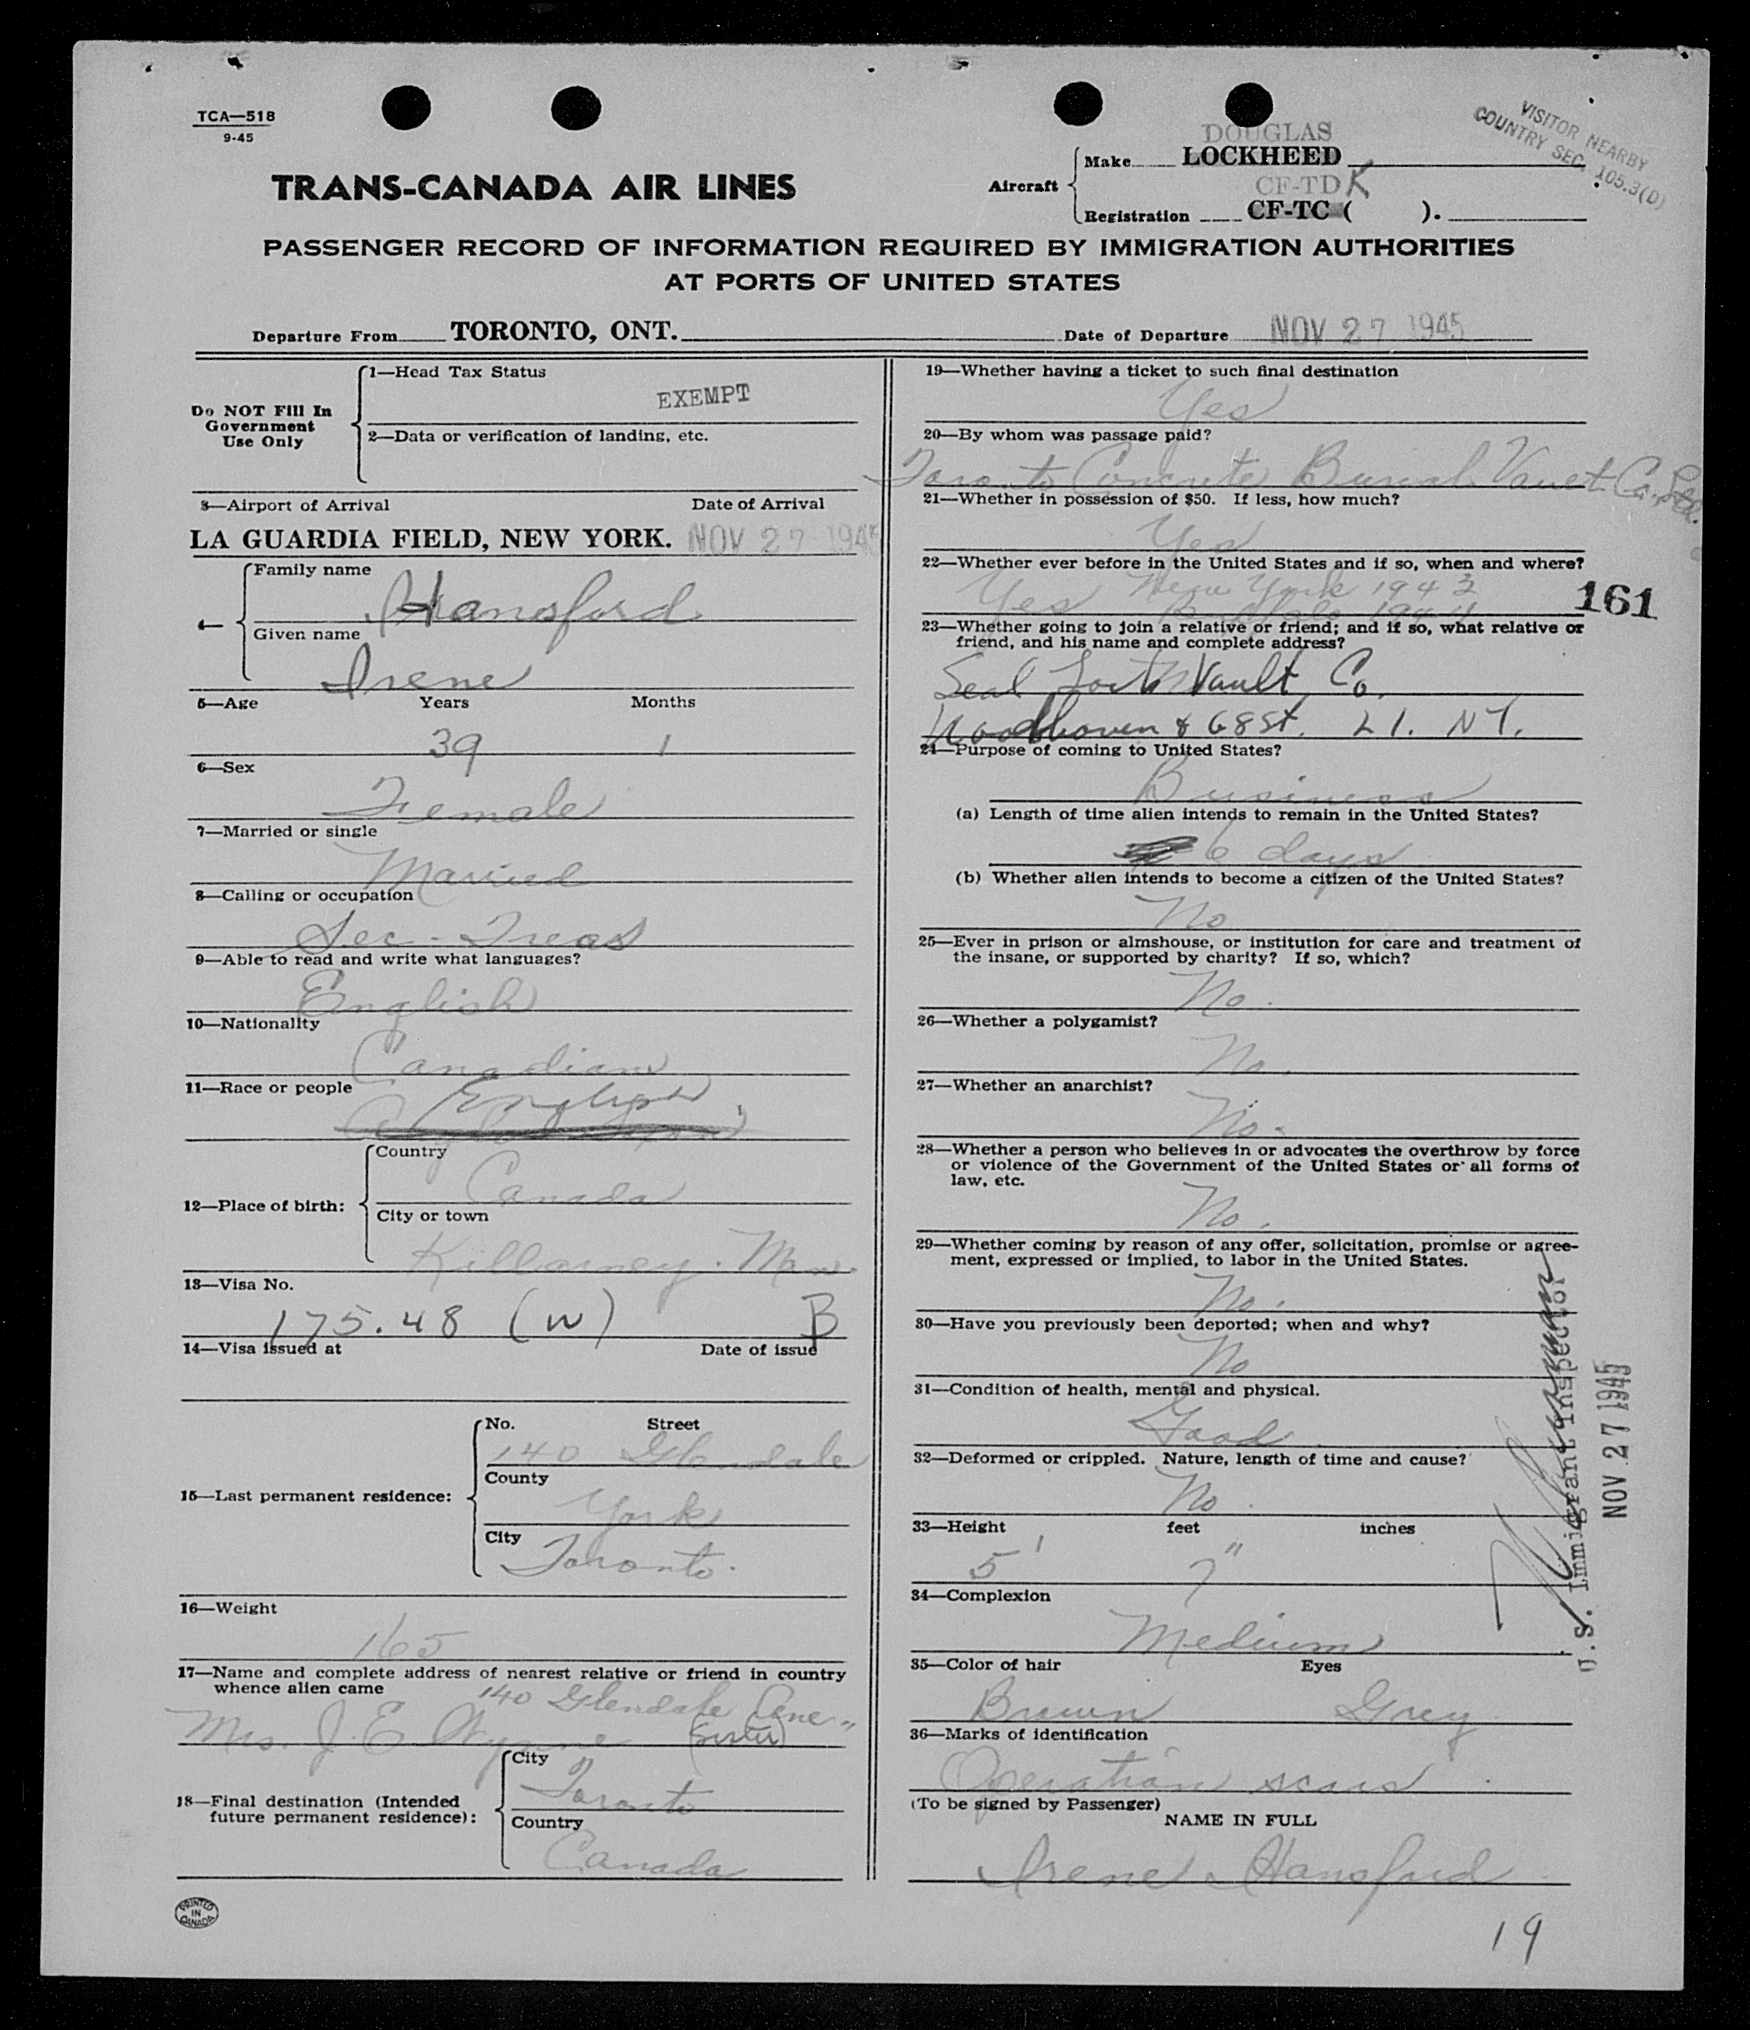 TCA—518
9-45
VISITOR NEARBY
COUNTRY SEC. 105.3(D)
TRANS-CANADA AIR LINES
Aircraft
DOUGLAS
Make LOCKHEED
CF-TDK
Registration CF-TC ( ).
PASSENGER RECORD OF INFORMATION REQUIRED BY IMMIGRATION AUTHORITIES
AT PORTS OF UNITED STATES
Departure From TORONTO, ONT. Date of Departure NOV 27 1945
Do NOT Fill In
Government
Use Only
1—Head Tax Status
EXEMPT
2—Data or verification of landing, etc.
3—Airport of Arrival Date of Arrival
LA GUARDIA FIELD, NEW YORK. NOV 27 1945
4—
Family name
Hansford
Given name
Irene
5—Age Years Months
39 1
6—Sex
Female
7—Married or single
Married
8—Calling or occupation
Sec-Treas
9—Able to read and write what languages?
English
10—Nationality
Canadian
11—Race or people
English
12—Place of birth:
Country
Canada
City or town
Killarney. Man.
13—Visa No.
175.48 (W) B
14—Visa issued at Date of issue
15—Last permanent residence:
No. Street
140 Glendale
County
York
City
Toronto.
16—Weight
165
17—Name and complete address of nearest relative or friend in country
whence alien came
140 Glendale Ave.
Mrs. J. E. Wynne (sister)
18—Final destination (Intended
future permanent residence):
City
Toronto
Country
Canada
PRINTED
IN
CANADA
19—Whether having a ticket to such final destination
Yes
20—By whom was passage paid?
Toronto Concrete Burial Vault Co. Ltd.
21—Whether in possession of $50. If less, how much?
Yes
22—Whether ever before in the United States and if so, when and where?
Yes New York 1943
Buffalo 1944
161
23—Whether going to join a relative or friend; and if so, what relative or
friend, and his name and complete address?
Seal Vault Co.
Woodhaven & 68 St. L I. NY.
24—Purpose of coming to United States?
Business
(a) Length of time alien intends to remain in the United States?
6 days
(b) Whether alien intends to become a citizen of the United States?
No
25—Ever in prison or almshouse, or institution for care and treatment of
the insane, or supported by charity? If so, which?
No.
26—Whether a polygamist?
No.
27—Whether an anarchist?
No.
28—Whether a person who believes in or advocates the overthrow by force
or violence of the Government of the United States or all forms of
law, etc.
No.
29—Whether coming by reason of any offer, solicitation, promise or agree-
ment, expressed or implied, to labor in the United States.
No.
30—Have you previously been deported; when and why?
No
31—Condition of health, mental and physical.
Good
32—Deformed or crippled. Nature, length of time and cause?
No.
33—Height feet inches
5' 7"
34—Complexion
Medium
35—Color of hair Eyes
Brown Grey
36—Marks of identification
Operation scars
(To be signed by Passenger)
NAME IN FULL
Irene Hansford
U.S. Immigrant Inspector
NOV 27 1945
19